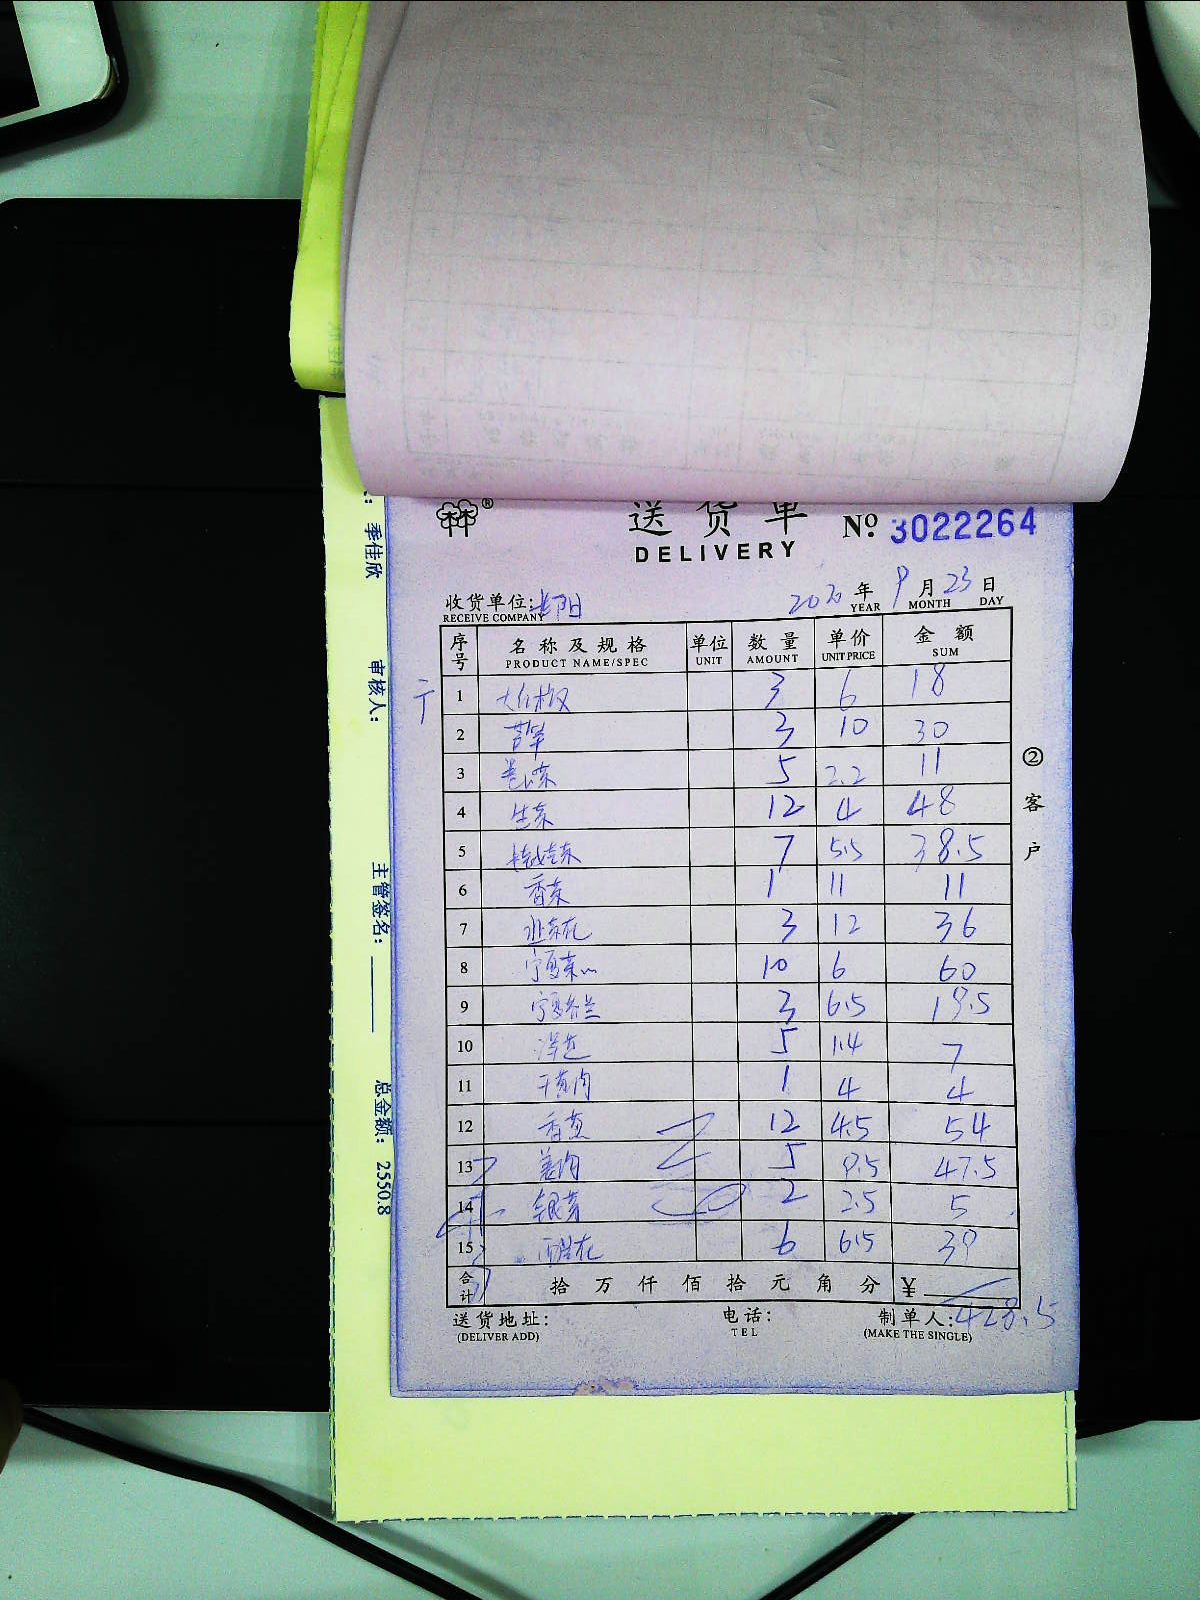 ®
送货单
DELIVERY
№ 3022264
收货单位:
RECEIVE COMPANY
2020 年 9 月 23 日
YEAR MONTH DAY
序号 名称及规格 单位 数量 单价 金额
PRODUCT NAME/SPEC UNIT AMOUNT UNIT PRICE SUM
1 3 6 18
2 芦笋 3 10 30
3 5 2.2 11
4 生菜 12 4 48
5 7 5.5 38.5
6 香菜 1 11 11
7 韭菜花 3 12 36
8 宁夏菜心 10 6 60
9 宁夏芥兰 3 6.5 19.5
10 洋芋 5 1.4 7
11 1 4 4
12 香葱 12 4.5 54
13 姜肉 5 9.5 47.5
14 银芽 2 2.5 5
15 西兰花 6 6.5 39
合计 拾 万 仟 佰 拾 元 角 分 ¥
428.5
送货地址: 电话: 制单人:
(DELIVER ADD) TEL (MAKE THE SINGLE)
②客户
季佳欣
审核人:
主管签名:
总金额: 2550.8